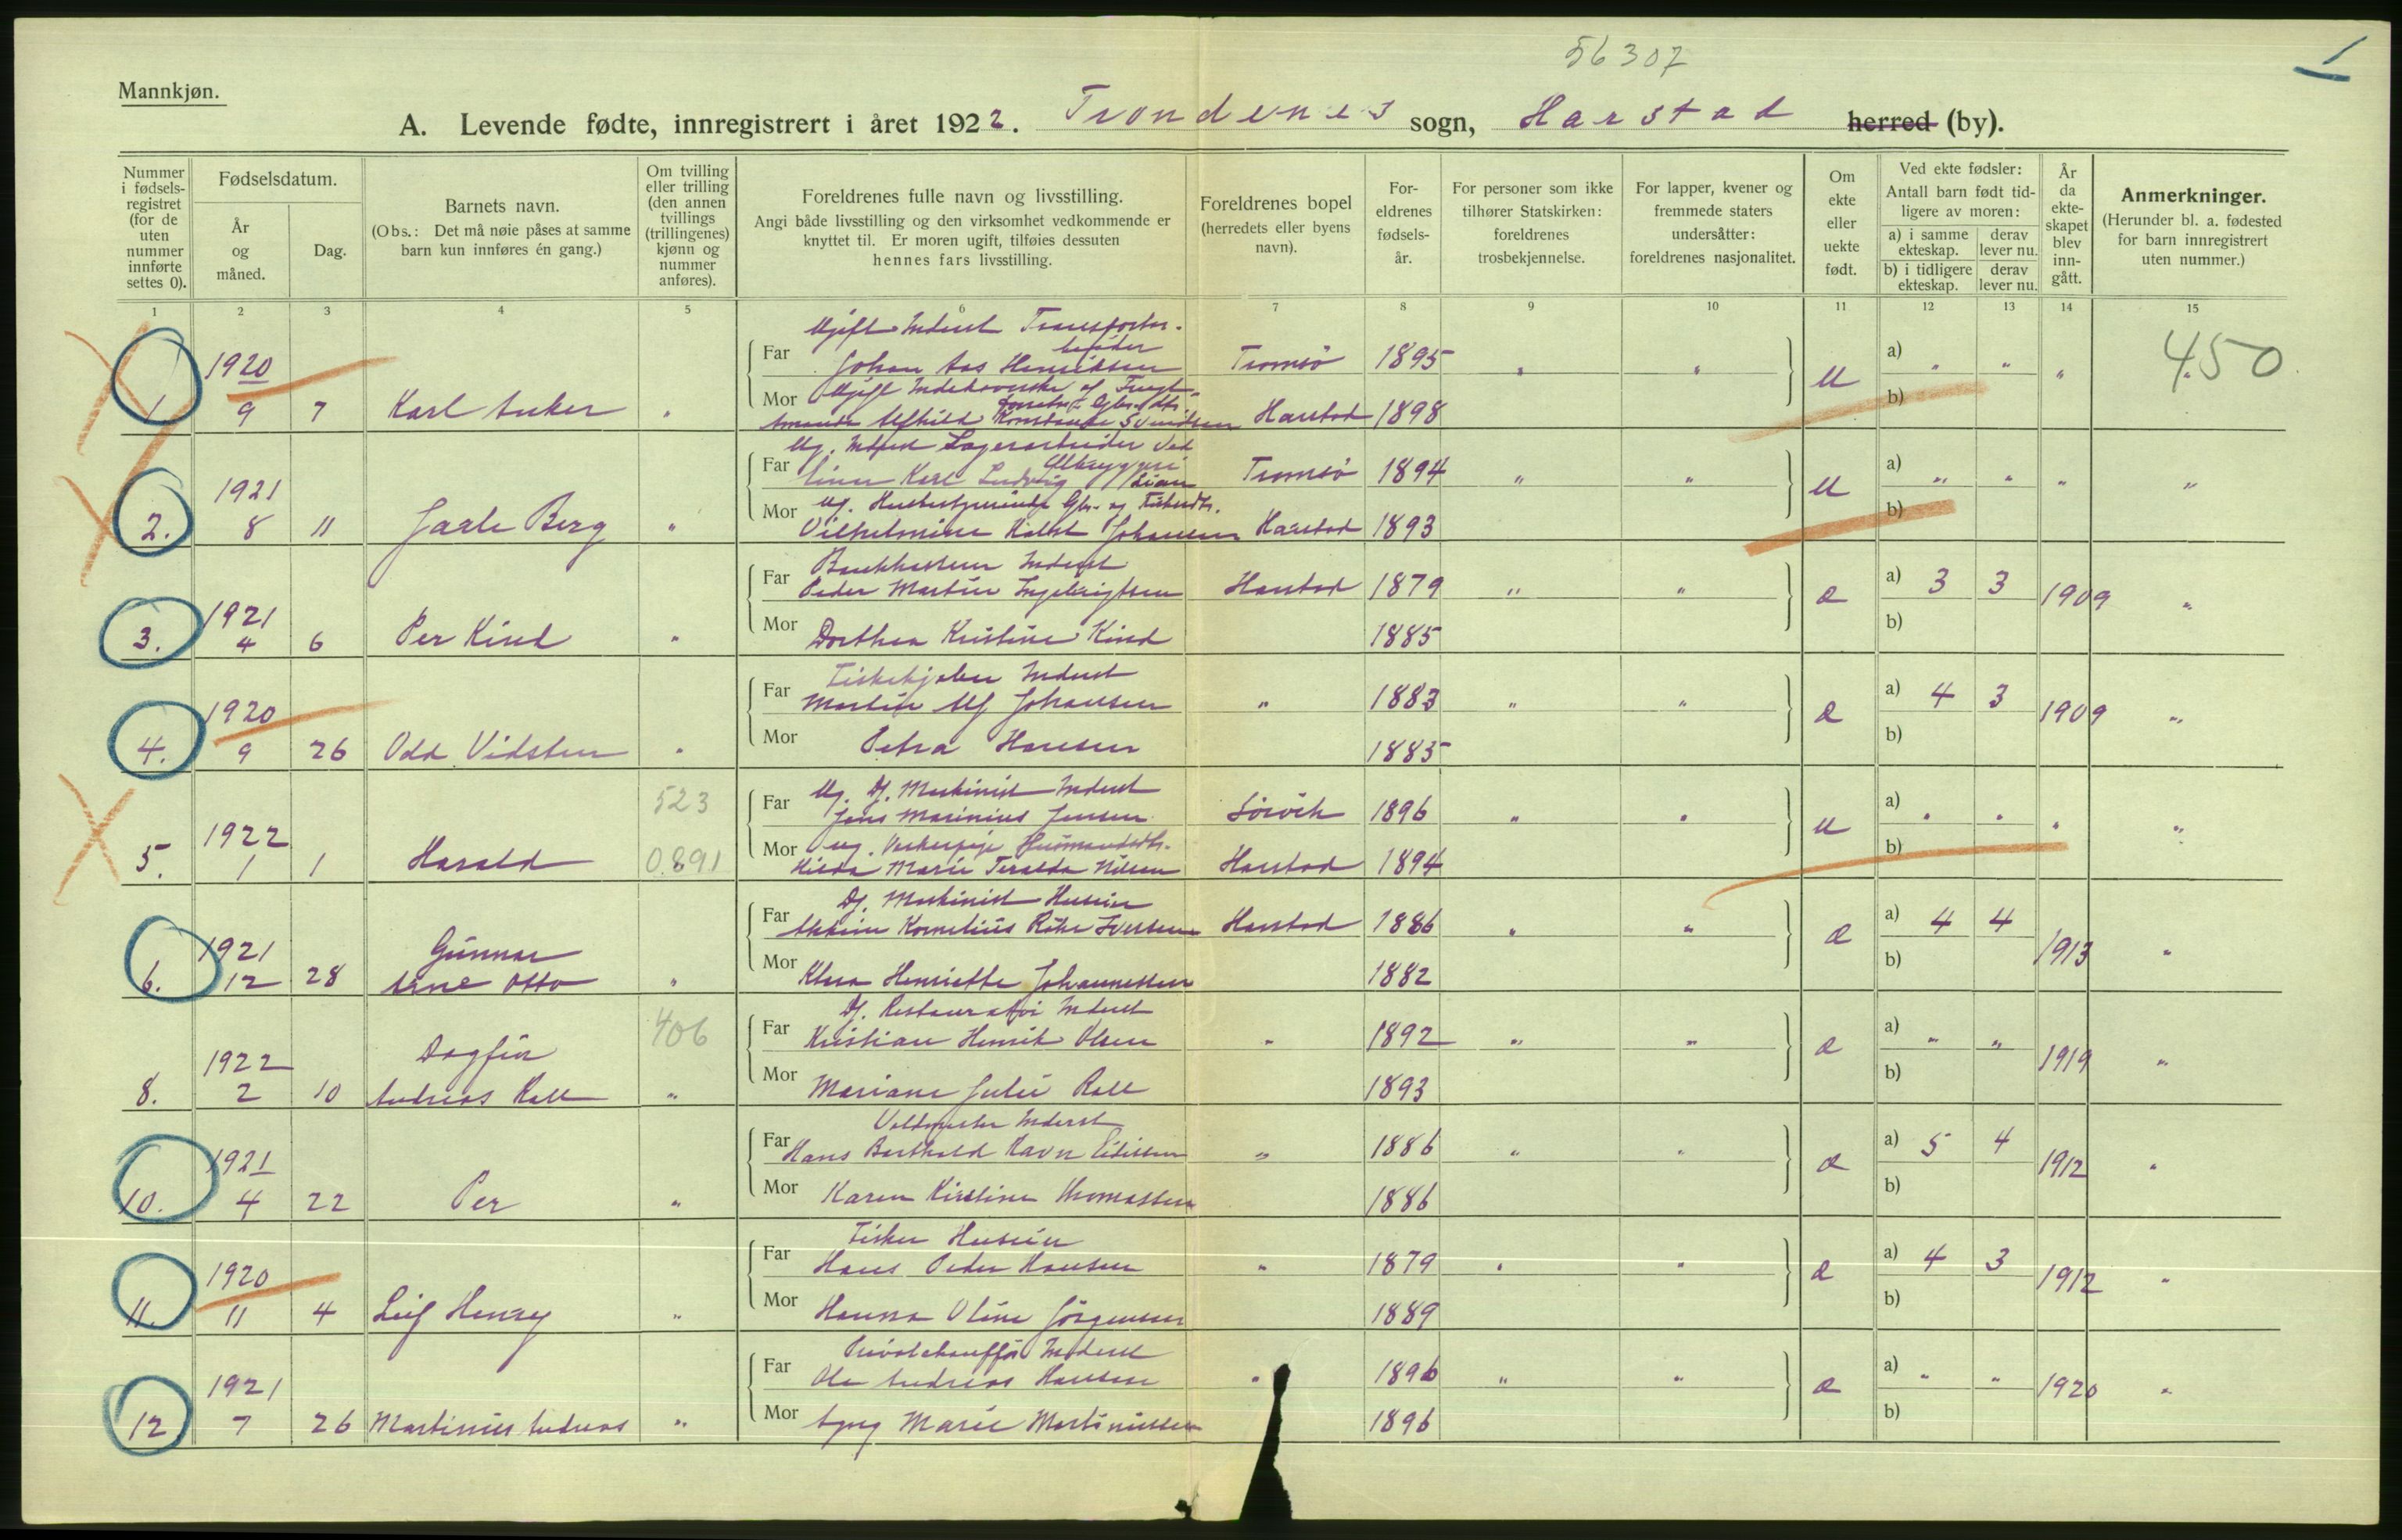 56307
1
Mannkjøn.
A. Levende fødte, innregistrert i året 1922. Trondenes sogn, Harstad herred (by).
Nummer i fødsels-registret (for de uten nummer innførte settes 0).
Fødselsdatum.
År og måned.
Dag.
Barnets navn.
(Obs.: Det må nøie påses at samme barn kun innføres én gang.)
Om tvilling eller trilling (den annen tvillings (trillingenes) kjønn og nummer anføres).
Foreldrenes fulle navn og livsstilling.
Angi både livsstilling og den virksomhet vedkommende er knyttet til. Er moren ugift, tilføies dessuten hennes fars livsstilling.
Foreldrenes bopel (herredets eller byens navn).
For-eldrenes fødsels-år.
For personer som ikke tilhører Statskirken: foreldrenes trosbekjennelse.
For lapper, kvener og fremmede staters undersåtter: foreldrenes nasjonalitet.
Om ekte eller uekte født.
Ved ekte fødsler:
Antall barn født tid-ligere av moren:
a) i samme ekteskap.
derav lever nu.
b) i tidligere ekteskap.
derav lever nu.
År da ekte-skapet blev inn-gått.
Anmerkninger.
(Herunder bl. a. fødested for barn innregistrert uten nummer.)
1 2 3 4 5 6 7 8 9 10 11 12 13 14 15
Ugift Inderst Transportar-
beider
1920 Far Johan Aas Henriksen Tromsø 1895 " " U a) " " " 450
Mor Ugift Indehaverske af
1. 9 7 Karl Anker " Svendsen Harstad 1898 b)
Ug. Inderst Lagerarbeider ved
Ølbryggeri
1921 Far Einar Karl Ludvig Lian Tromsø 1894 " " U a) " " " "
Mor Ug. Husbestyrerinde Gbr. og Fiskerdtr.
2. 8 11 Jarle Berg " Vilhelmine Johansen Harstad 1893 b)
Bankkasserer Inderst
1921 Far Peder Martin Ingebrigtsen Harstad 1879 " " E a) 3 3 1909 "
3. 4 6 Per Kind " Mor Dorthea Kristine Kind 1885 b)
Fiskekjøber Inderst
1920 Far Martin Alf Johansen " 1883 " " E a) 4 3 1909 "
4. 9 26 Odd Vidsten " Mor Petra Hansen 1885 b)
523
Ug. Df. Maskinist Inderst
1922 Far Jens Marinius Jensen Sørvik 1896 " " U a) " " " "
Mor ug. Husmandsdtr.
5. 1 1 Harald 0.891 Hilda Marie Teralda Nilsen Harstad 1894 b)
Df. Maskinist Huseier
1921 Far Kornelius Iversen Harstad 1886 " " E a) 4 4 1913 "
Gunnar
6. 12 28 Arne Otto " Mor Klara Henriette Johannessen 1882 b)
406
Df. Restauratør Inderst
1922 Far Kristian Henrik Olsen " 1892 " " E a) " " 1919 "
Dagfin
8. 2 10 Andreas Roll " Mor Mariane Julie Roll 1893 b)
Inderst
1921 Far Hans Barthold Ravn Eidissen " 1886 " " E a) 5 4 1912 "
10. 4 22 Per " Mor Karen Kirstine Thomassen 1886 b)
Fisker Huseier
1920 Far Hans Peder Hansen " 1879 " " E a) 4 3 1912 "
11. 11 4 Leif Henry " Mor Hanna Oline Jørgensen 1889 b)
Privatchauffør Inderst
1921 Far Ole Andreas Hansen " 1896 " " E a) " " 1920 "
12. 7 26 Martinius Andreas " Mor Marie Martinussen 1896 b)